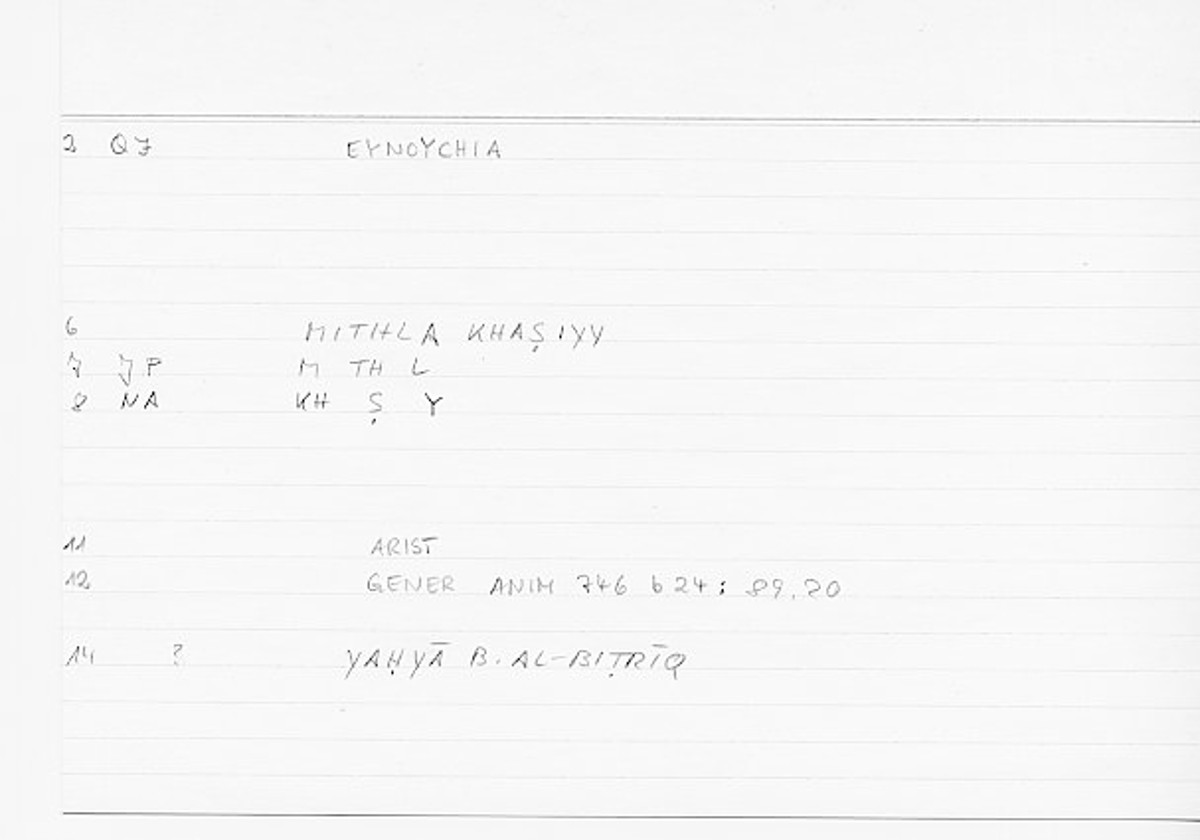 2 QJ EYNOYCHIA
6 MITHLA KHAṢIYY
7 JP M TH L
8 NA KH Ṣ Y
11 ARIST
12 GENER ANIM 746 b 24 : 89.20
14 ? YAḤYĀ B. AL-BIṬRĪQ